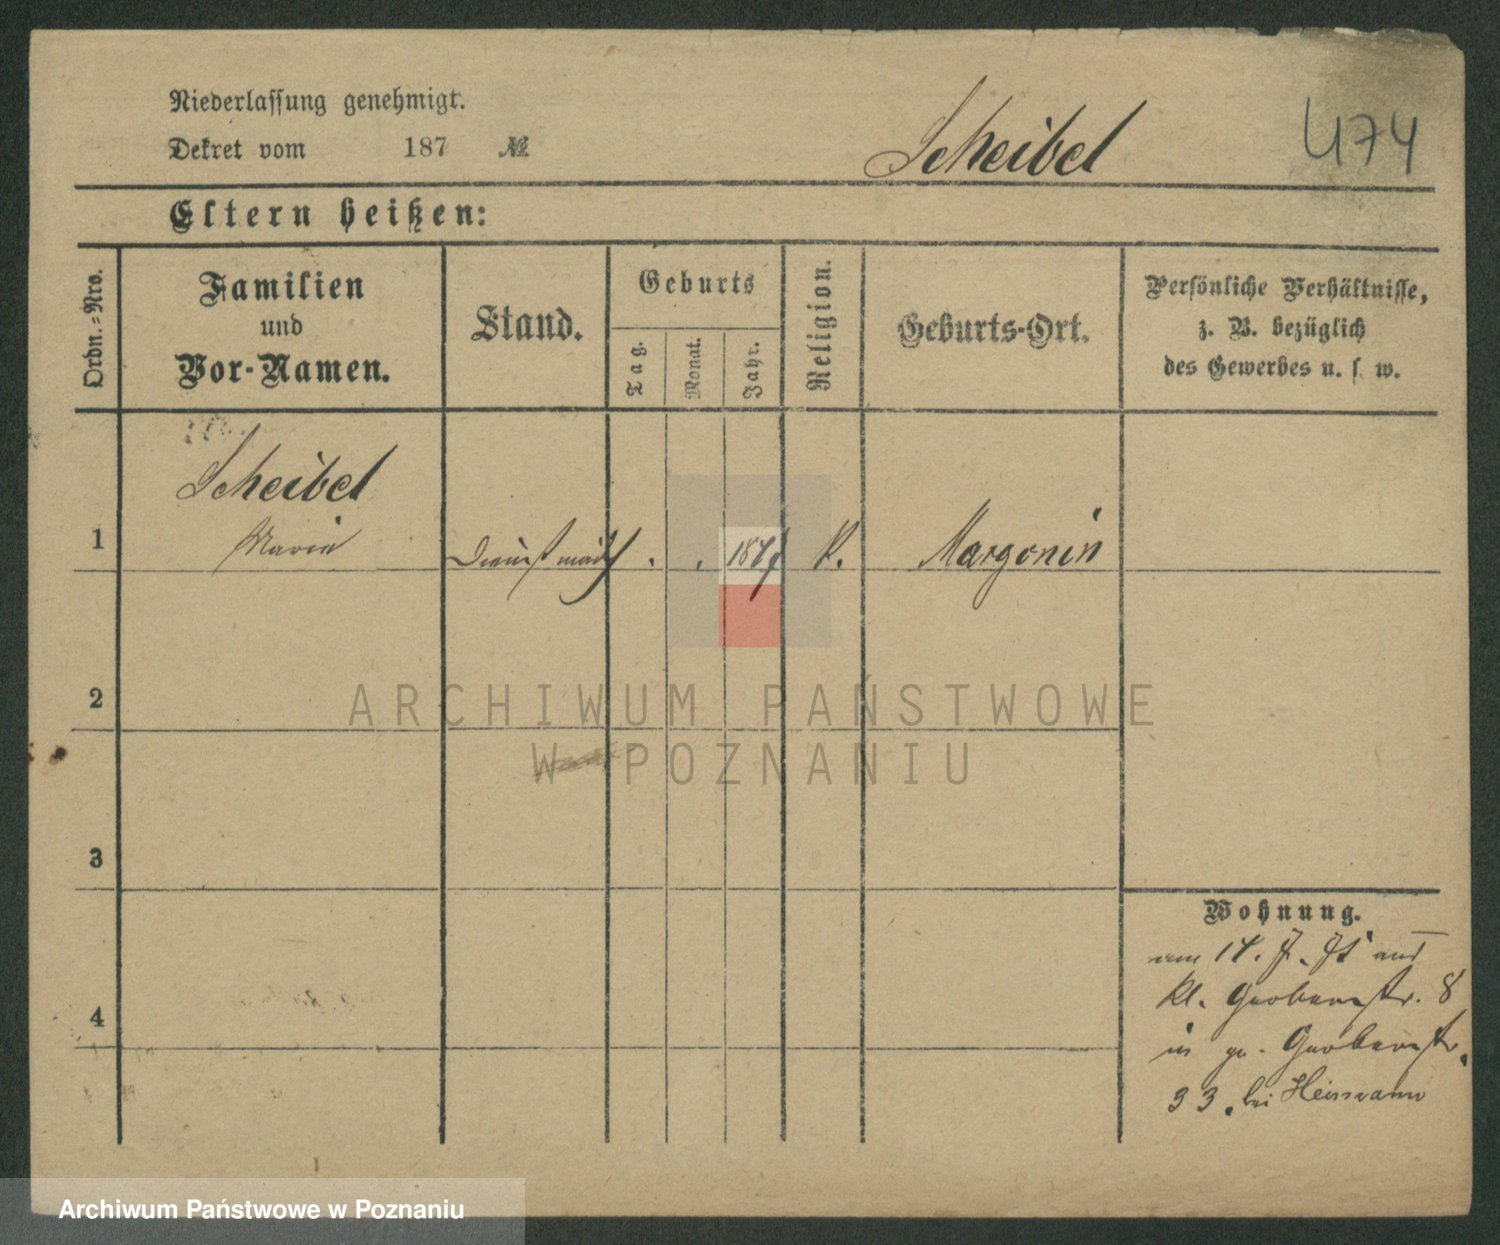 Niederlassung genehmigt.
Dekret vom 187 №
Scheibel
474
Eltern heißen:
Ordn.-Nro.
Familien
und
Vor-Namen.
Stand.
Geburts
Tag.
Monat.
Jahr.
Religion.
Geburts-Ort.
Persönliche Verhältnisse,
z. B. bezüglich
des Gewerbes u. s. w.
Scheibel
1 Marie Dienstmädch . . K. Margonin
2
ARCHIWUM PAŃSTWOWE
W POZNANIU
3
Wohnung.
am 14.
kl. Gerberstr. 8
in gr. Gerberstr.
33. bei
4
Archiwum Państwowe w Poznaniu